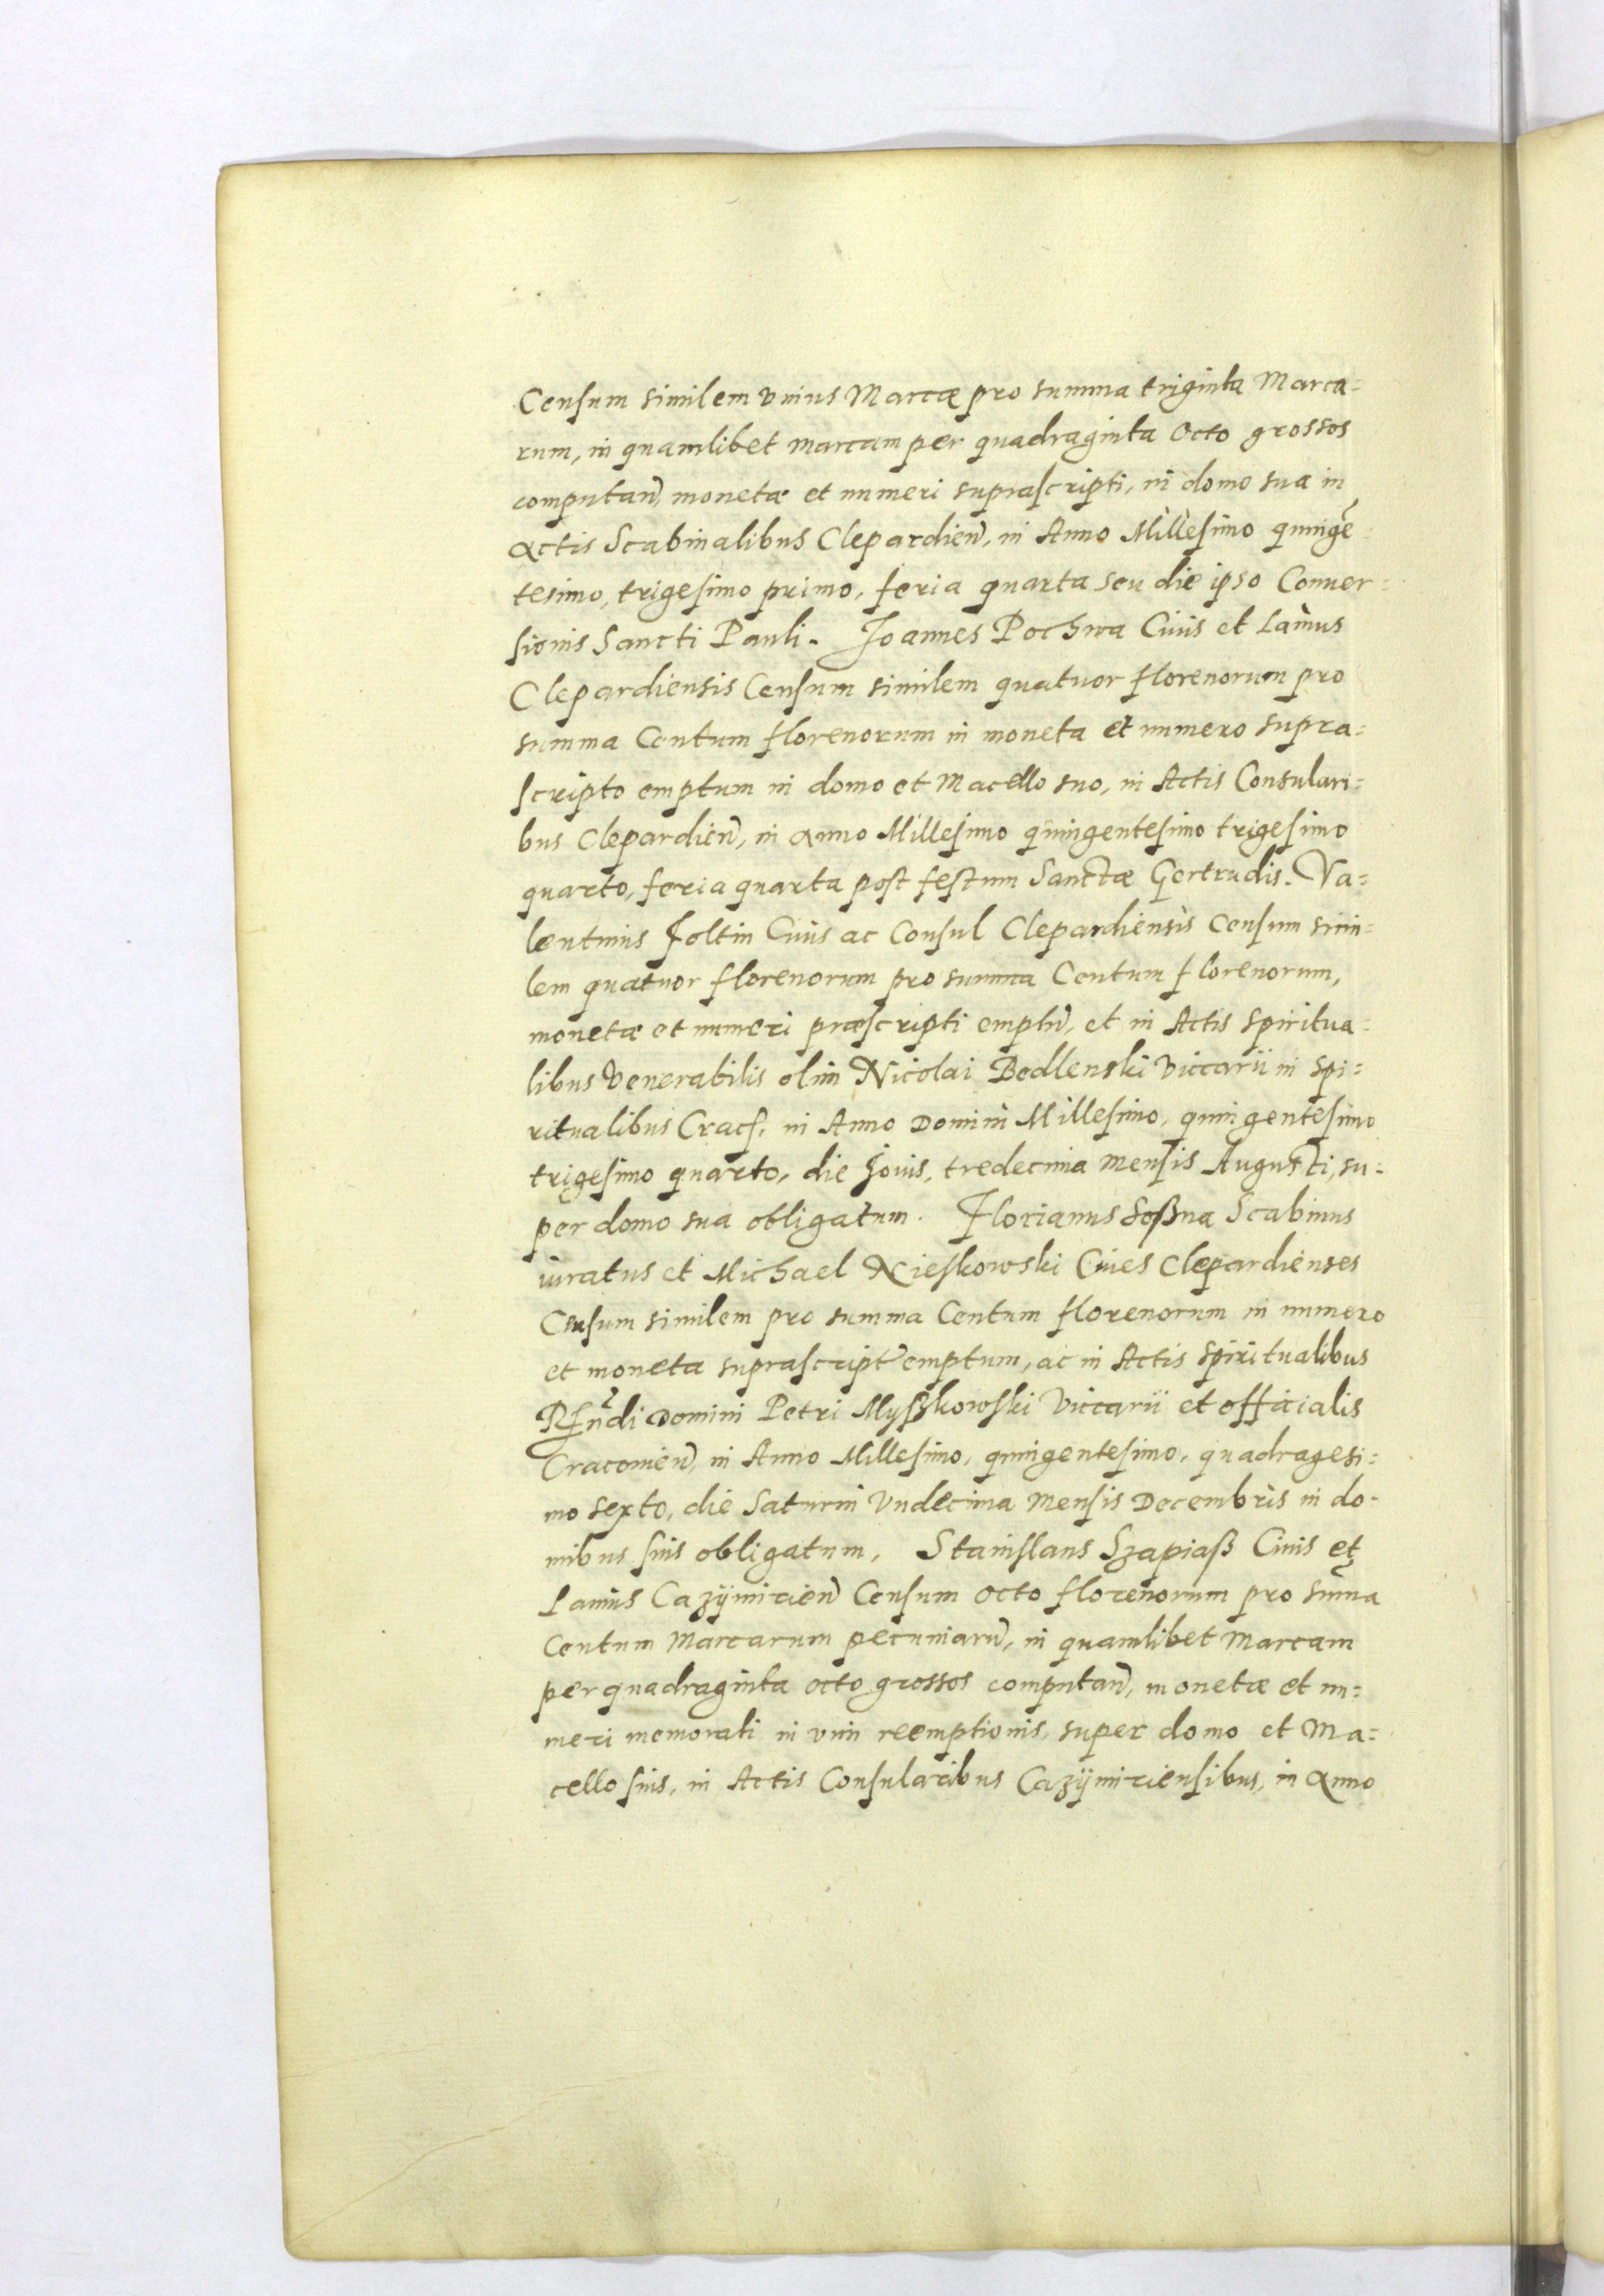 Censum similem vnius Marcæ pro summa triginta Marca=
rum, in quamlibet marcam per quadraginta Octo grossos
computan̄, monetæ et numeri suprascripti, in domo sua in
actis Scabinalibus Clepardien̄, in Anno Millesimo quinge͂
tesimo, trigesimo primo, feria quarta seu die ipso Conuer=
sionis Sancti Pauli. Joannes Pochwa Ciuis et Lanius
Clepardiensis Censum similem quatuor florenorum pro
summa Centum florenorum in moneta et numero supra=
scripto emptum in domo et Macello suo, in Actis Consulari=
bus Clepardien̄, in anno Millesimo quingentesimo trigesimo
quarto, feria quarta post festum Sanctæ Gertrudis. Va=
lentinus Foltin Ciuis ac Consul Clepardiensis Censum simi=
lem quatuor florenorum pro summa Centum florenorum,
monetæ et numeri præscripti emptū, et in Actis spiritua=
libus Venerabilis olim Nicolai Bedlenski Viccarii in spi=
ritualibus Cracf. in Anno Domini Millesimo, quingentesimo
trigesimo quarto, die Jouis, tredecima mensis Augusti, su=
per domo sua obligatum. Florianus Soßna Scabinus
iuratus et Michael Nieskowski Ciues Clepardienses
Censum similem pro summa Centum florenorum in numero
et moneta suprascript̄ emptum, ac in Actis spiritualibus
Rñdi Domini Petri Myßkowski Viccarii et officialis
Cracouien̄, in Anno Millesimo, quingentesimo, quadragesi=
mo sexto, die Saturni Vndecima mensis Decembris in do=
mibus suis obligatum. Stanislaus Szapiaß Ciuis et
Lanius Cazÿmirien̄ Censum octo florenorum pro sum̄a
Centum Marcarum pecuniarū, in quamlibet Marcam
per quadraginta octo grossos computan̄, monetæ et nu=
meri memorati in vim reemptionis, super domo et Ma=
cello suis, in Actis Consularibus Cazÿmiriensibus, in anno